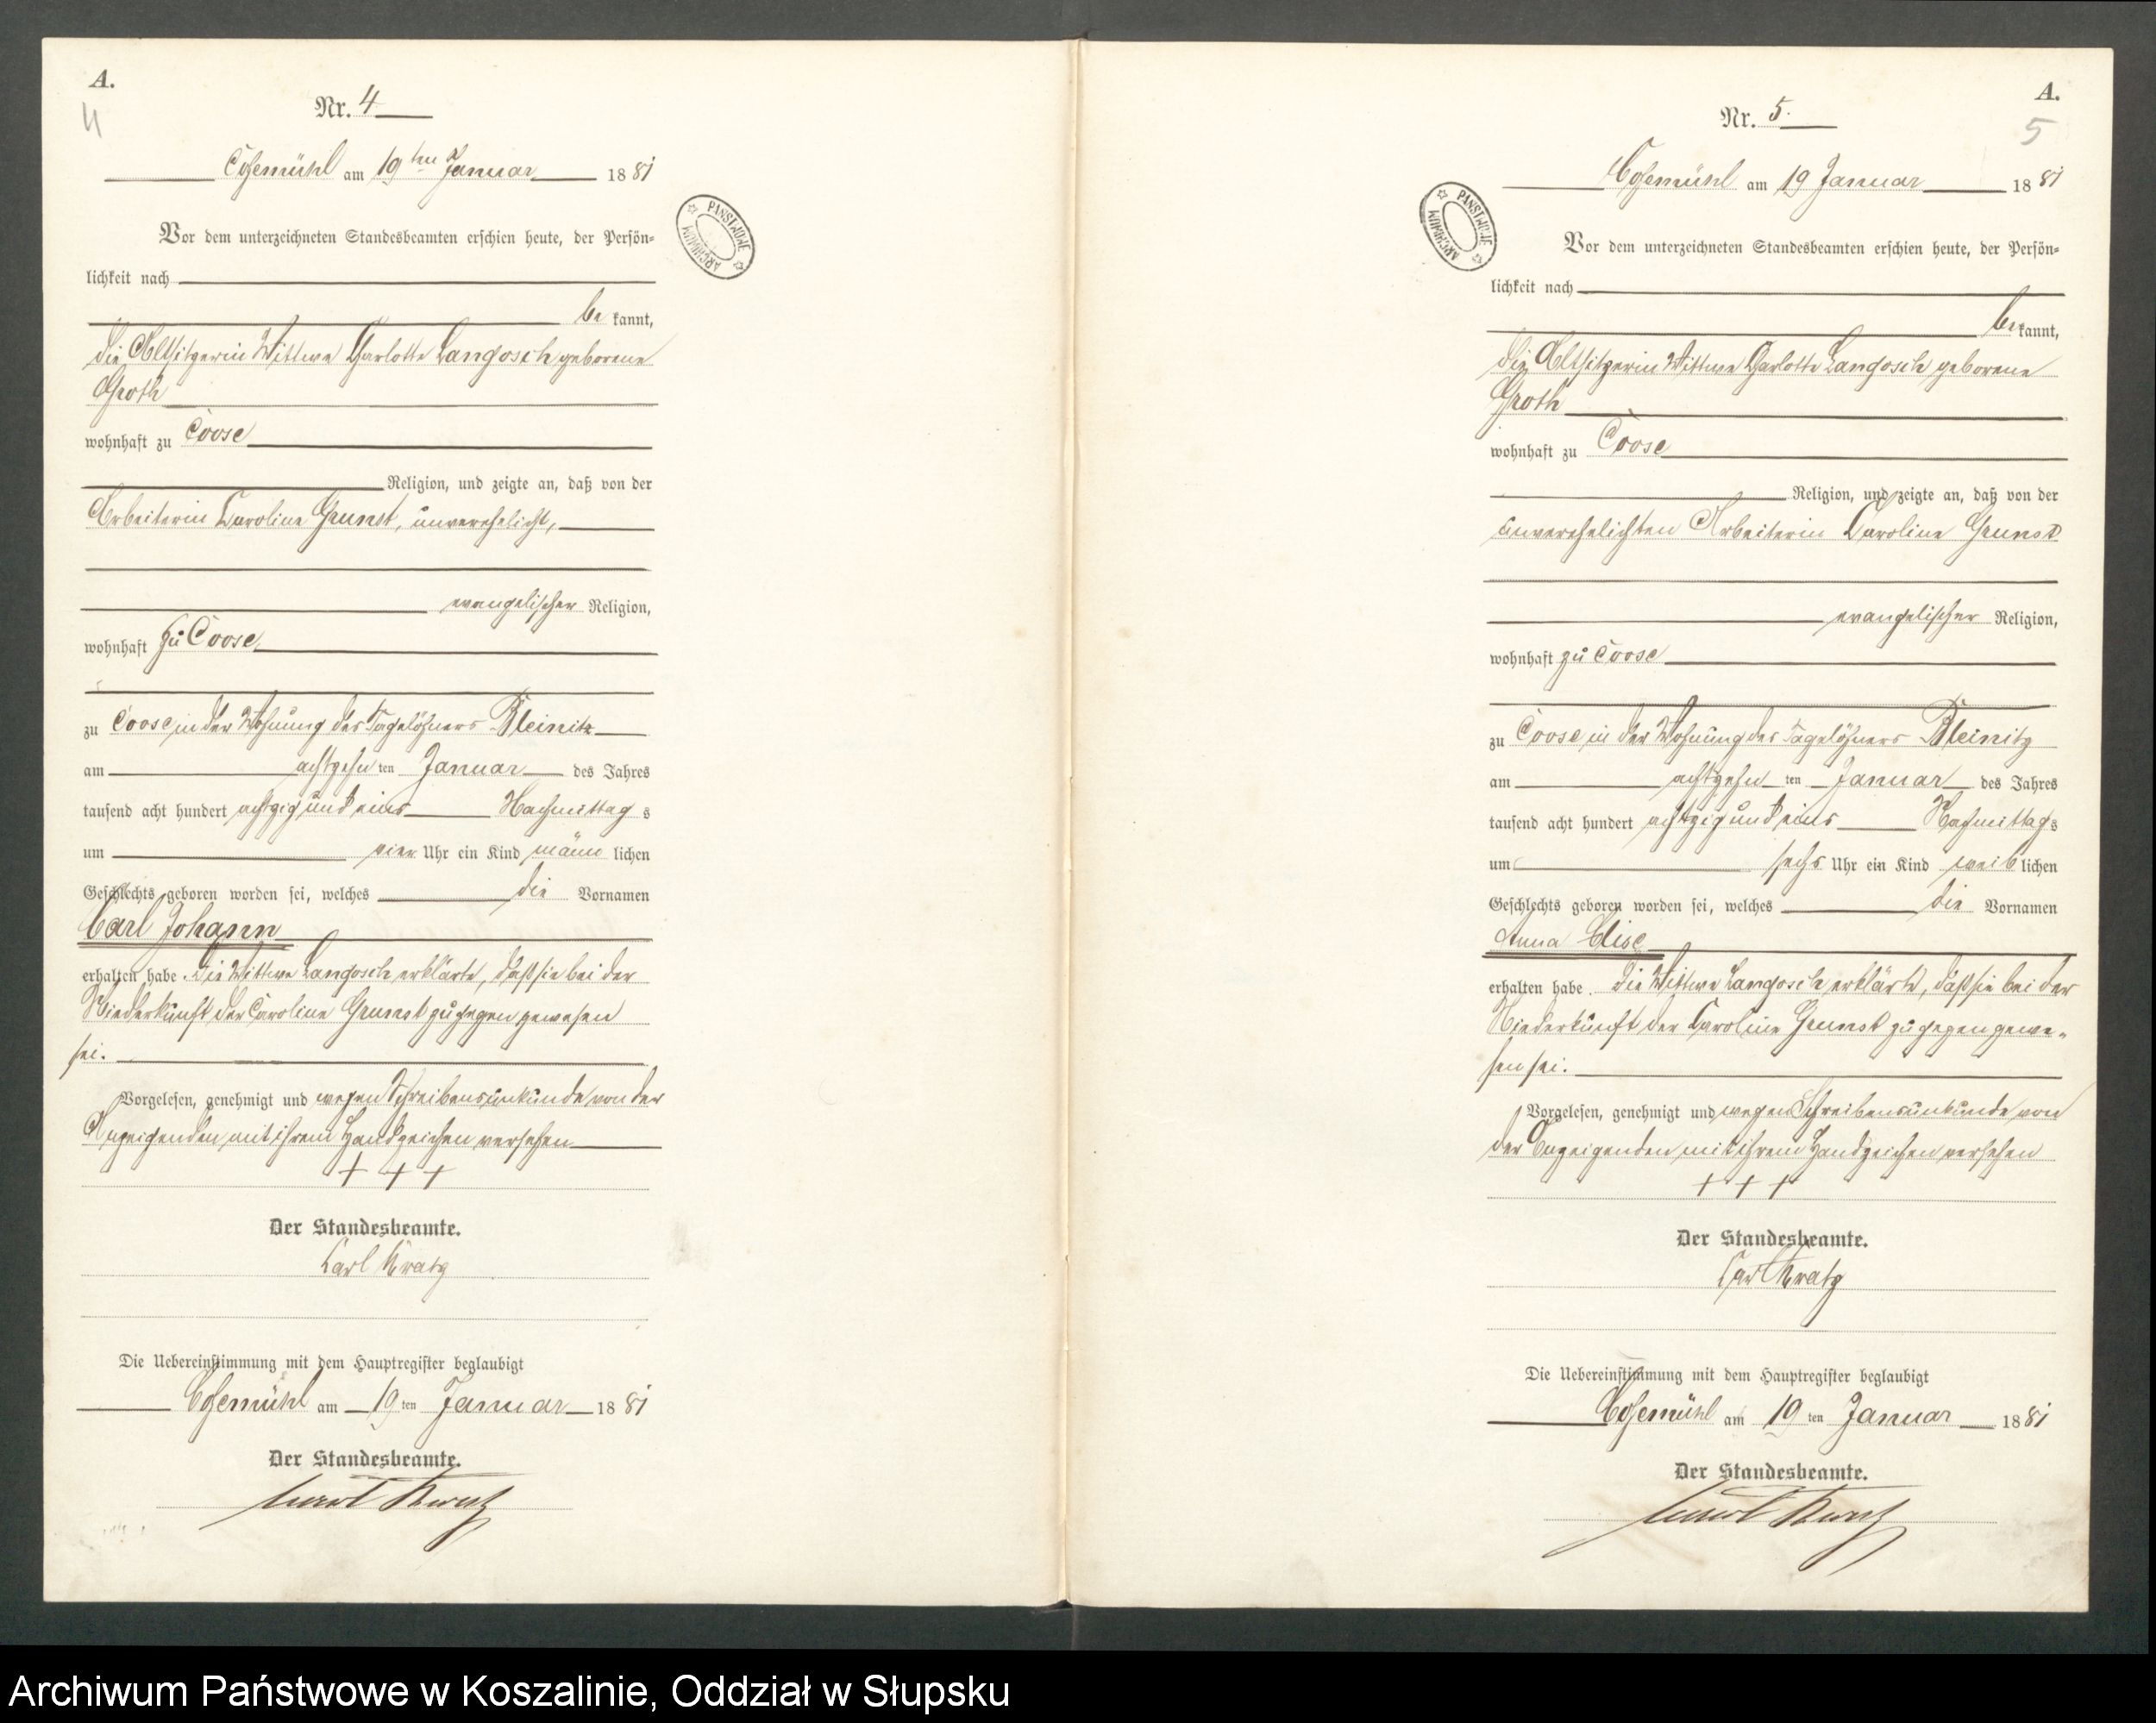 A.
4
Nr. 4
Cosemühl am 19ten Januar 1881
Vor dem unterzeichneten Standesbeamten erschien heute, der Persön=
lichkeit nach
be kannt,
die Altsitzerin Wittwe Charlotte Langosch geborene
Groth
wohnhaft zu Coose
Religion, und zeigte an, daß von der
Arbeiterin Caroline Grunst, unverehelicht,
evangelischer Religion,
wohnhaft zu Coose,
zu Coose in der Wohnung des Tagelöhners Pleinitz
am achtzehn ten Januar des Jahres
tausend acht hundert achtzig und eins Nachmittag s
um vier Uhr ein Kind männ lichen
Geschlechts geboren worden sei, welches die Vornamen
Carl Johann
erhalten habe. Die Wittwe Langosch erklärte, daß sie bei der
Niederkunft der Caroline Grunst zugegen gewesen
sei.
Vorgelesen, genehmigt und wegen Schreibensunkunde von der
Anzeigenden mit ihrem Handzeichen versehen
+ + +
Der Standesbeamte.
Carl Kratz
Die Uebereinstimmung mit dem Hauptregister beglaubigt
Cosemühl am 19 ten Januar 1881
Der Standesbeamte.
Carl Kratz
ARCHIWUM PAŃSTWOWE
A.
5
Nr. 5.
Cosemühl am 19 Januar 1881
Vor dem unterzeichneten Standesbeamten erschien heute, der Persön=
lichkeit nach
be kannt,
die Altsitzerin Wittwe Charlotte Langosch geborene
Groth
wohnhaft zu Coose
Religion, und zeigte an, daß von der
unverehelichten Arbeiterin Caroline Grunst
evangelischer Religion,
wohnhaft zu Coose
zu Coose in der Wohnung des Tagelöhners Pleinitz
am achtzehn ten Januar des Jahres
tausend acht hundert achtzig und eins Nachmittag s
um sechs Uhr ein Kind weib lichen
Geschlechts geboren worden sei, welches die Vornamen
Anna Elise
erhalten habe. Die Wittwe Langosch erklärte, daß sie bei der
Niederkunft der Caroline Grunst zugegen gewe-
sen sei.
Vorgelesen, genehmigt und wegen Schreibensunkunde von
der Anzeigenden mit ihrem Handzeichen versehen
+ + +
Der Standesbeamte.
Carl Kratz
Die Uebereinstimmung mit dem Hauptregister beglaubigt
Cosemühl am 19 ten Januar 1881
Der Standesbeamte.
Carl Kratz
ARCHIWUM PAŃSTWOWE
Archiwum Państwowe w Koszalinie, Oddział w Słupsku